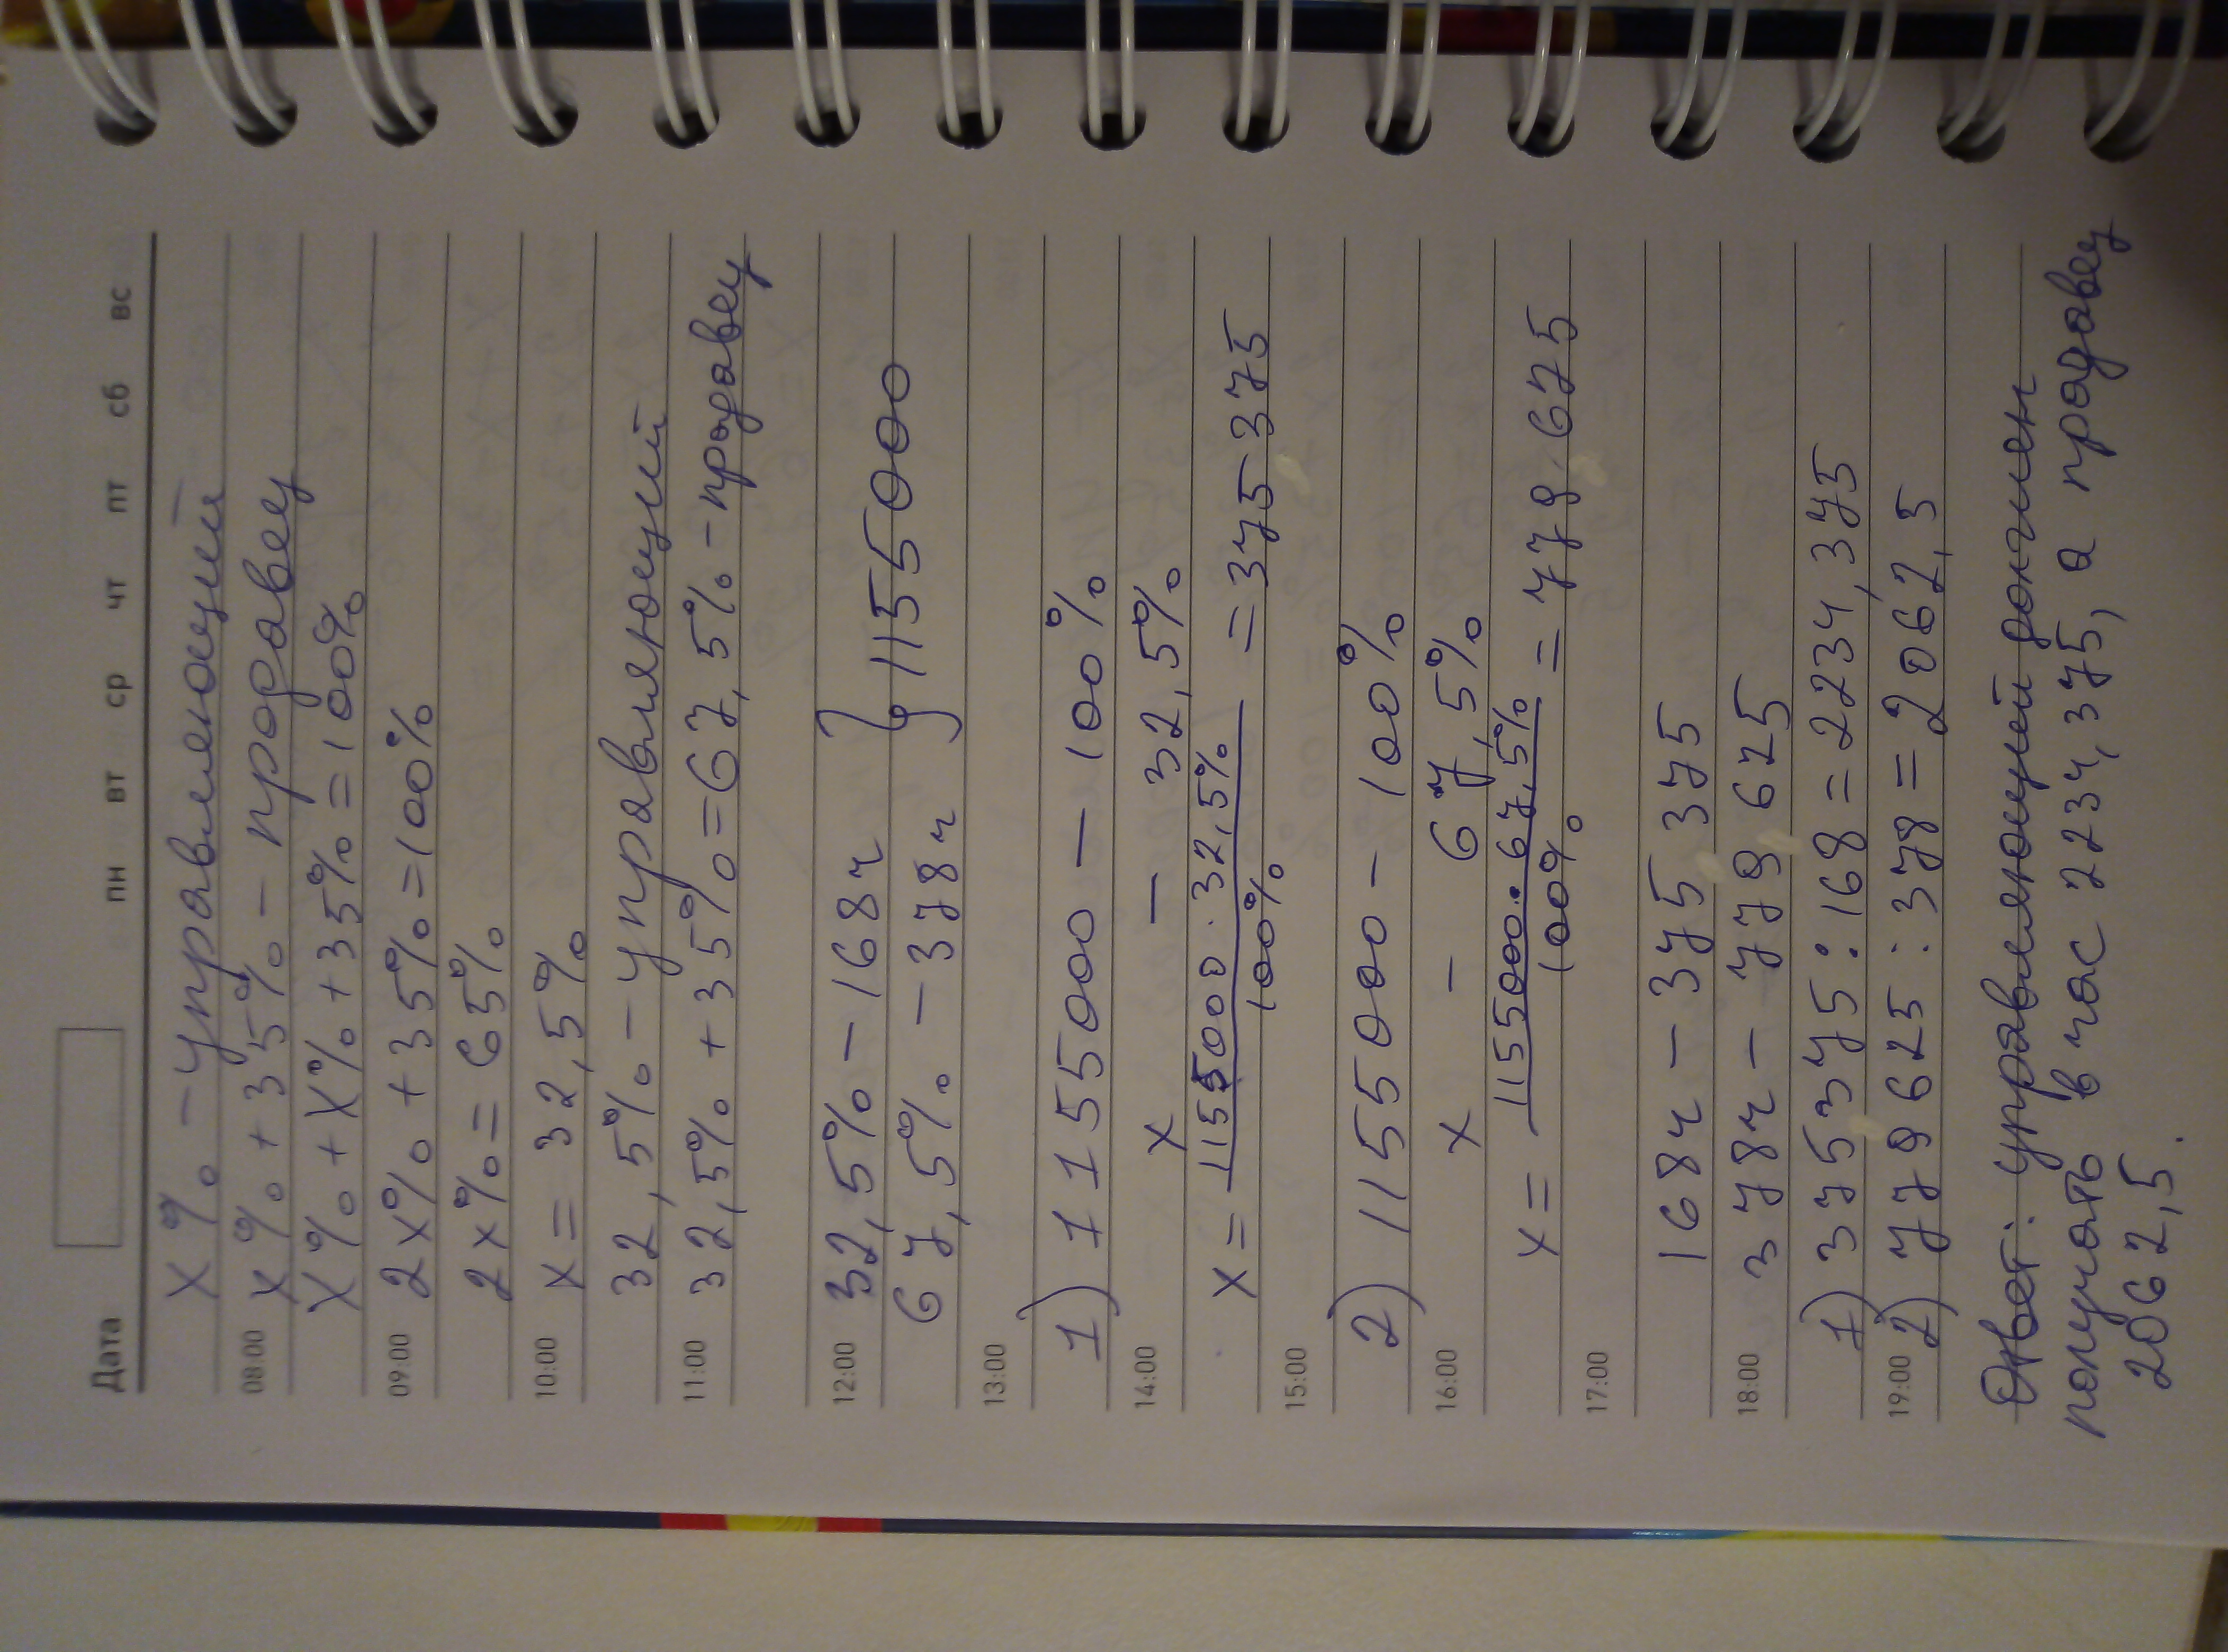 Дата пн вт ср чт пт сб вс
x% - управляющий
08:00 x% + 35% - продавец
x% + x% + 35% = 100%
09:00 2x% + 35% = 100%
2x% = 65%
10:00 x = 32,5%
32,5% - управляющий
11:00 32,5% + 35% = 67,5% - продавец
12:00 32,5% - 168ч
67,5% - 378ч } 1155000
13:00
1) 1155000 - 100%
14:00 x - 32,5%
x = 1155000 · 32,5% / 100% = 375 375
15:00
2) 1155000 - 100%
16:00 x - 67,5%
x = 1155000 · 67,5% / 100% = 779 625
17:00
168ч - 375 375
18:00 378ч - 779 625
1) 375375 : 168 = 2234,375
19:00 2) 779625 : 378 = 2062,5
Ответ: управляющий должен
получать в час 2234,375, а продавец
2062,5.